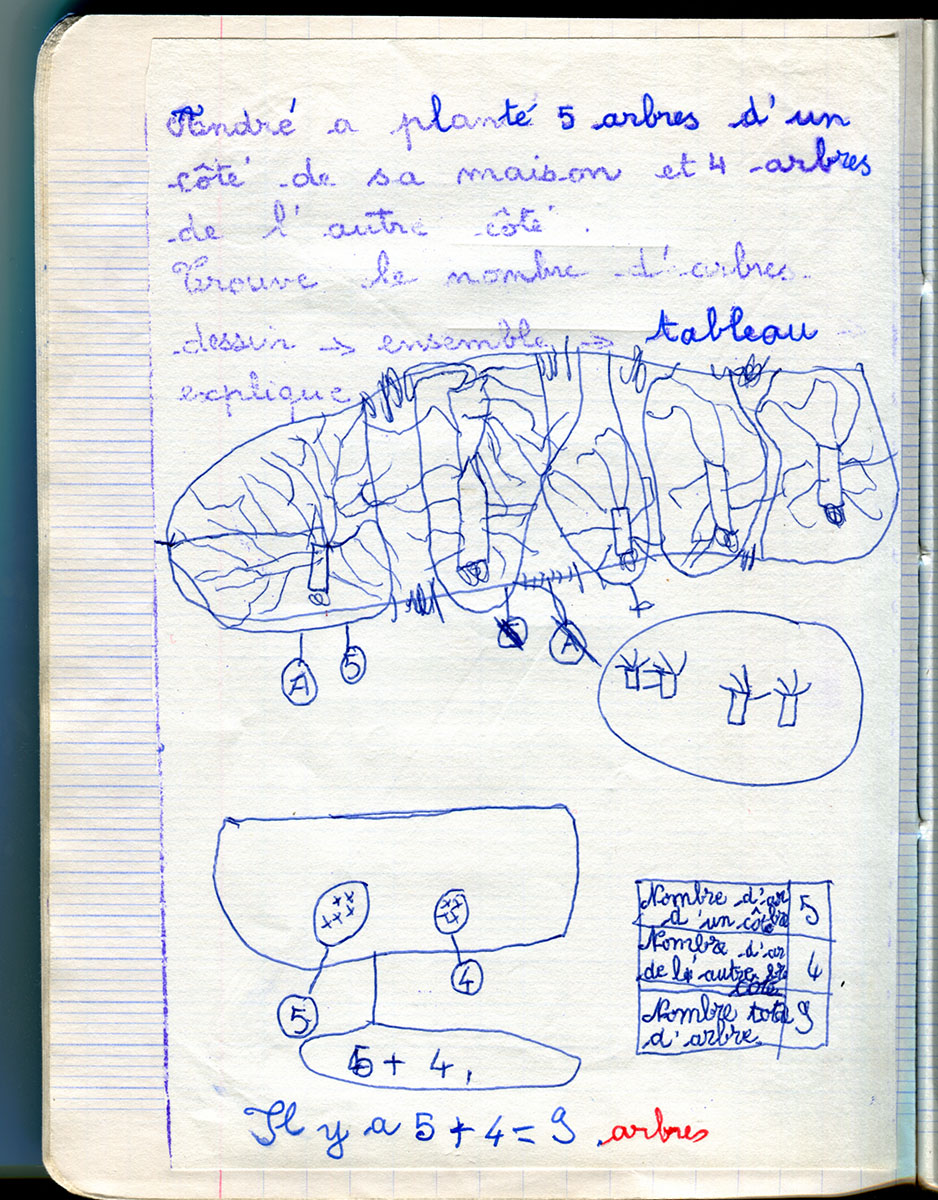 André a planté 5 arbres d'un
côté de sa maison et 4 arbres
de l'autre côté.
Trouve le nombre d'arbres.
dessin → ensemble → tableau
explique
A
5
A
5
4
5 + 4
Nombre d'ar
bre
d'un côté
5
Nombre d'ar
de l'autre
côté
4
Nombre total
d'arbre
9
Il y a 5 + 4 = 9 arbres